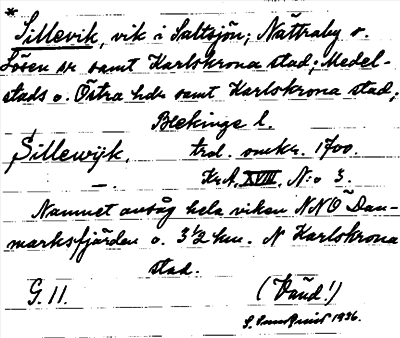 * Sillevik, vik i Saltsjön; Nättraby o.
Lösen sr samt Karlskrona stad; Medel-
stads o. Östra hdr samt Karlskrona stad;
Blekinge l.
Sillewijk, trol. omkr. 1700.
—. Kr.A, XVIII, N:o 3.
Namnet avsåg hela viken NNO Dan-
marksfjärden o. 3½ km. N Karlskrona
stad.
G. 11. (Vänd!)
S. 1936.